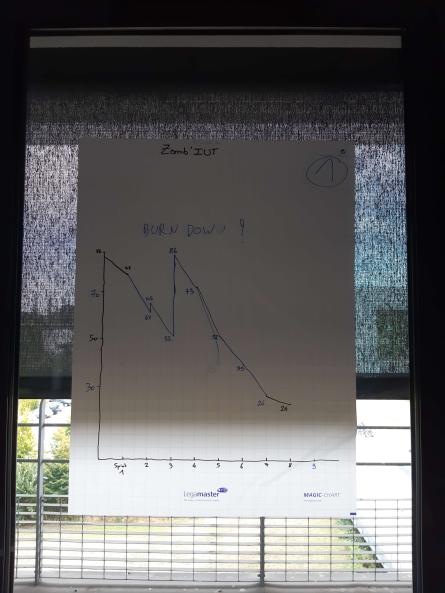 Zomb'IUT
1
BURN DOWN !
86
73
70
50
52
35
30
26
Sprint
1
2
3
4
5
6
7
8
9
Legamaster
MAGIC-CHART